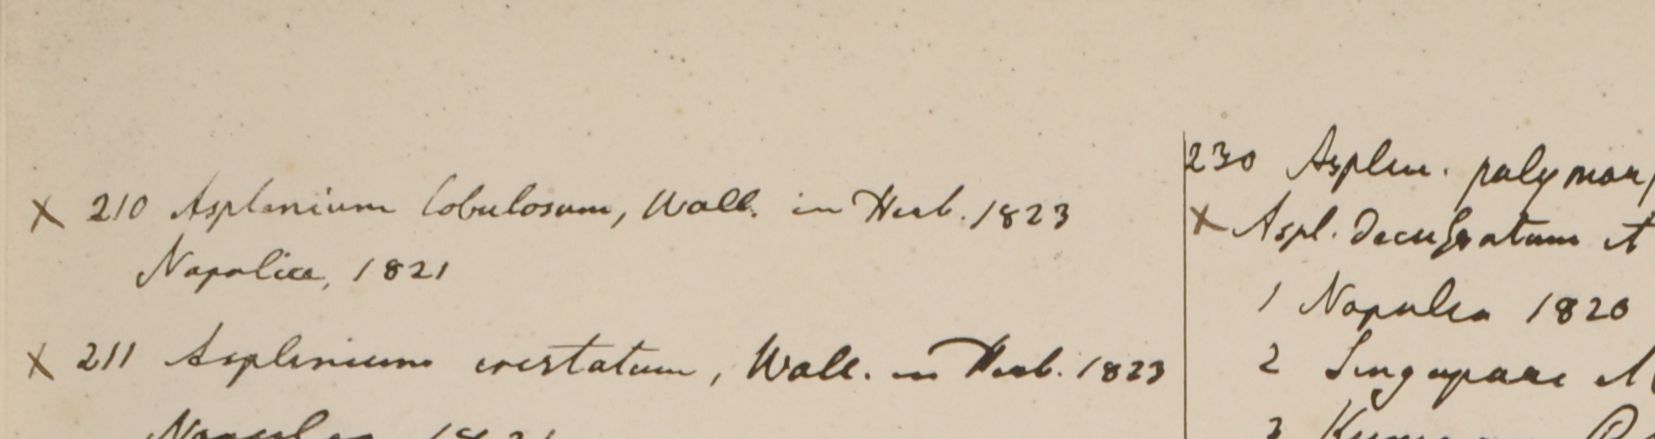 X 210 Asplenium lobulosum, Wall. in Herb. 1823
Napalia, 1821
X 211 Asplenium crestatum, Wall. in Herb. 1823
230 Asplen. polymor
X Aspl. decussatum
1 Napalia 1820
2 Singapore
3